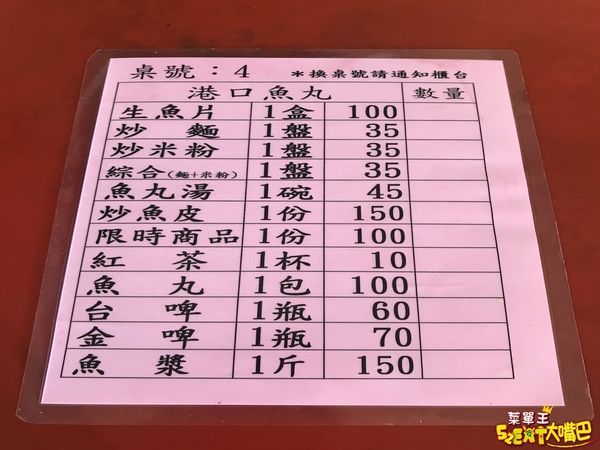 桌號：4 ＊換桌號請通知櫃台
港口魚丸 數量
生魚片 1盒 100
炒麵 1盤 35
炒米粉 1盤 35
綜合(麵+米粉) 1盤 35
魚丸湯 1碗 45
炒魚皮 1份 150
限時商品 1份 100
紅茶 1杯 10
魚丸 1包 100
台啤 1瓶 60
金啤 1瓶 70
魚漿 1斤 150
菜單王
SzEAT大嘴巴